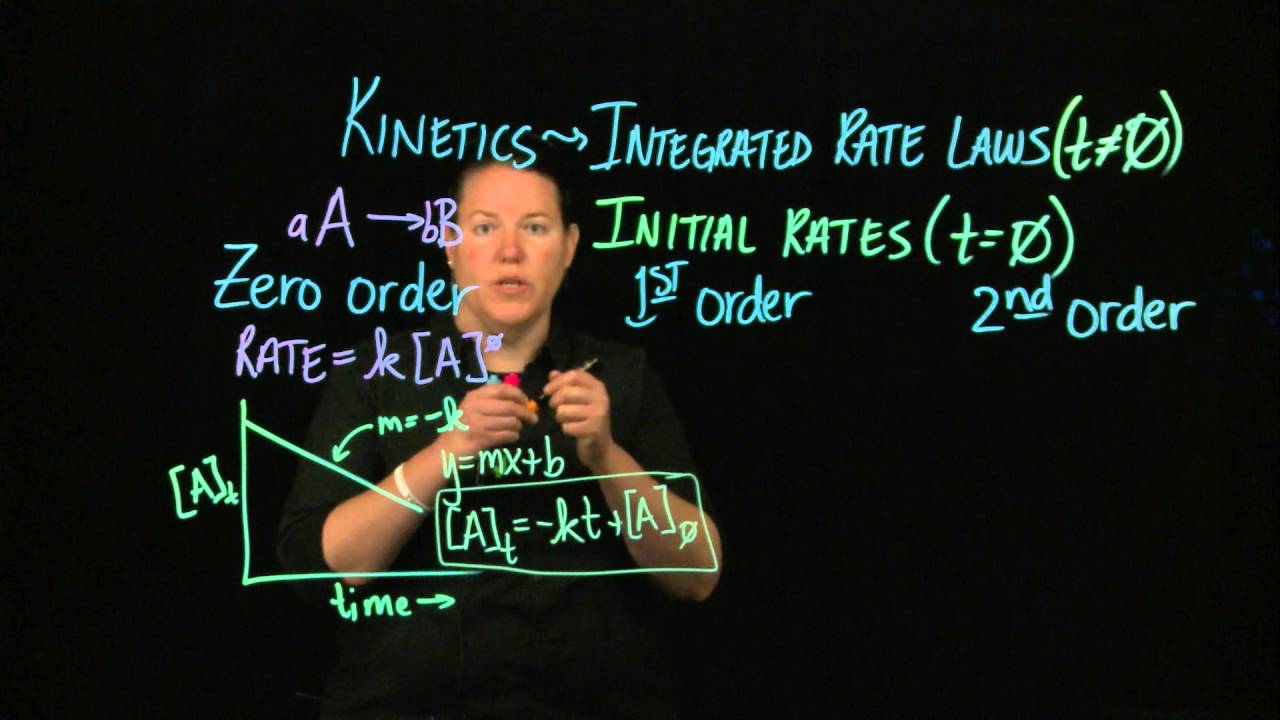 KINETICS ⤳ INTEGRATED RATE LAWS (t≠∅)
aA → bB
INITIAL RATES (t=∅)
Zero order
1ST order
2nd order
RATE = k[A]^∅
m=-k
[A]t
y=mx+b
[A]t=-kt+[A]∅
time →